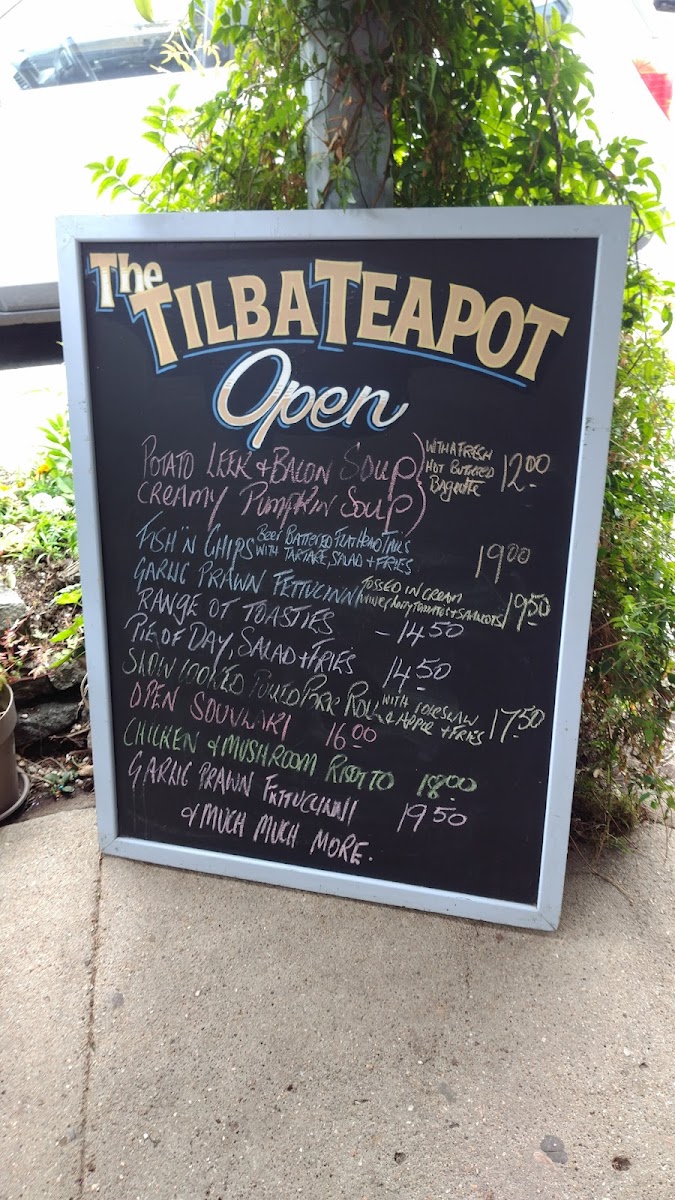 The TILBA TEAPOT
Open
POTATO LEEK & BACON SOUP
CREAMY PUMPKIN SOUP
WITH A FRESH
HOT BUTTERED
Baguette
12.00
FISH 'N CHIPS BEER BATTERED FLATHEAD TAILS
WITH TARTARE, SALAD + FRIES 19.00
GARLIC PRAWN FETTUCINNI TOSSED IN CREAM
WINE, CHERRY TOMATOES + SHALLOTS 19.50
RANGE OF TOASTIES - 14.50
PIE OF DAY, SALAD + FRIES 14.50
SLOW COOKED PULLED PORK ROLL WITH COLESLAW
& APPLE + FRIES 17.50
OPEN SOUVLAKI 16.00
CHICKEN & MUSHROOM RISOTTO 18.00
GARLIC PRAWN FETTUCINNI 19.50
& MUCH MUCH MORE.